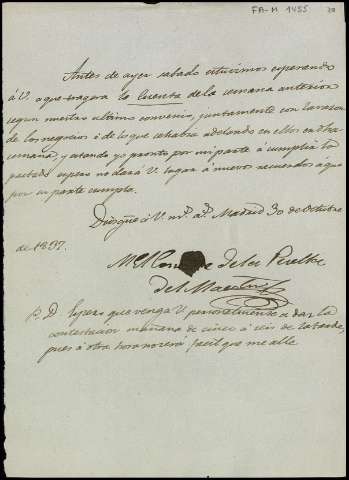 FA-M 1455
Antes de ayer sabado estuvimos esperando
á V. a que tragera la Cuenta de la semana anterior
segun nuestro ultimo convenio, juntamente con la razon
de los negocios i de lo que se habia adelantado en ellos en otra
semana; y estando yo pronto por mi parte á cumplir lo
pactado espero no dará V. lugar á nuevos recuerdos á que
por su parte cumpla.
Dios gue á V. ms. as. Madrid 30 de Octubre
de 1837.
de las
del
P. D. Espero que venga V. personalmente a dar la
contestacion mañana de cinco á seis de la tarde,
pues á otra hora no será facil que me alle